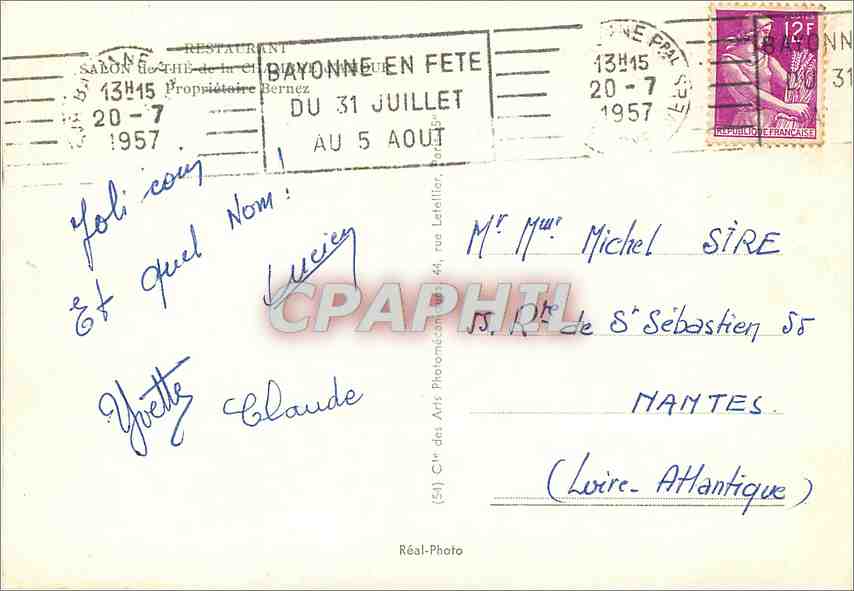 RESTAURANT
SALON de THÉ de la
Propriétaire Bernez
BAYONNE
13H15
20-7
1957
BAYONNE EN FETE
DU 31 JUILLET
AU 5 AOUT
13H15
20-7
1957
12F
REPUBLIQUE FRANCAISE
BAYONN
DU 31
Joli coup
Et quel Nom!
Lucien
Yvette
Claude
(54) Cie des Arts Photomécaniques, 44, rue Letellier, Paris-15e
Mr Mme Michel SIRE
55. Rte de St Sébastien 55
NANTES.
(Loire-Atlantique)
CPAPHIL
Réal-Photo